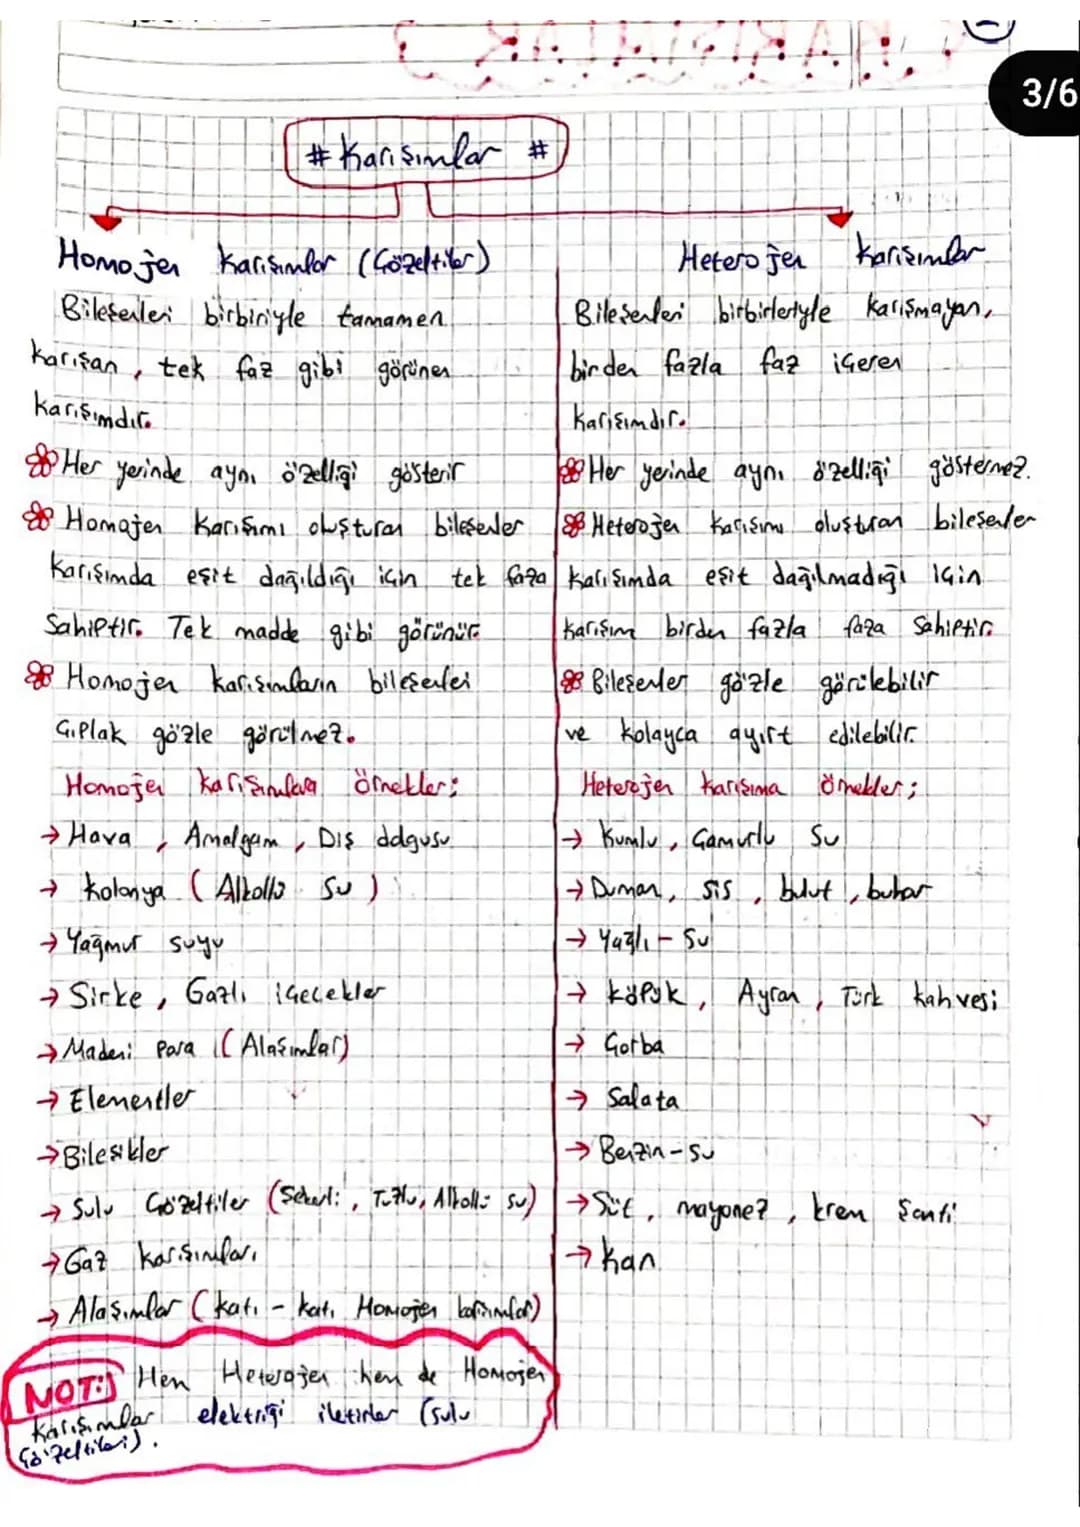 3/6
# Karışımlar #
Homojen Karışımlar (Çözeltiler)
Bileşenleri birbiriyle tamamen
karışan, tek faz gibi görünen
karışımdır.
Her yerinde aynı özelliği gösterir
Homojen karışımı oluşturan bileşenler
karışımda eşit dağıldığı için tek faza
sahiptir. Tek madde gibi görünür.
Homojen karışımların bileşenleri
Çıplak gözle görülmez.
Homojen karışımlara örnekler;
→ Hava, Amalgam, Diş dolgusu
→ Kolonya (Alkollü su)
→ Yağmur suyu
→ Sirke, Gazlı içecekler
→ Madeni Para (Alaşımlar)
→ Elementler
→ Bileşikler
→ Sulu Çözeltiler (Şekerli, Tuzlu, Alkollü su)
→ Gaz karışımları
→ Alaşımlar (katı - katı Homojen karışımlar)
NOT: Hem Heterojen hem de Homojen
karışımlar elektriği iletirler (sulu
Çözeltileri).
Heterojen karışımlar
Bileşenleri birbirleriyle karışmayan,
birden fazla faz içeren
karışımdır.
Her yerinde aynı özelliği göstermez.
Heterojen karışımı oluşturan bileşenler
karışımda eşit dağılmadığı için
karışım birden fazla faza sahiptir.
Bileşenler gözle görülebilir
ve kolayca ayırt edilebilir.
Heterojen karışıma örnekler;
→ Kumlu, Çamurlu su
→ Duman, sis, bulut, buhar
→ Yağlı - su
→ Köpük, Ayran, Türk kahvesi
→ Çorba
→ Salata
→ Benzin - su
→ Süt, mayonez, krem şanti
→ Kan